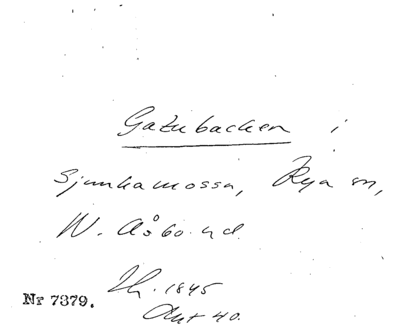 Gatubacken i
Sjunkamossa, Rya sn,
W. Åsbo hd.
Th. 1845
Ant 40.
Nr 7379.